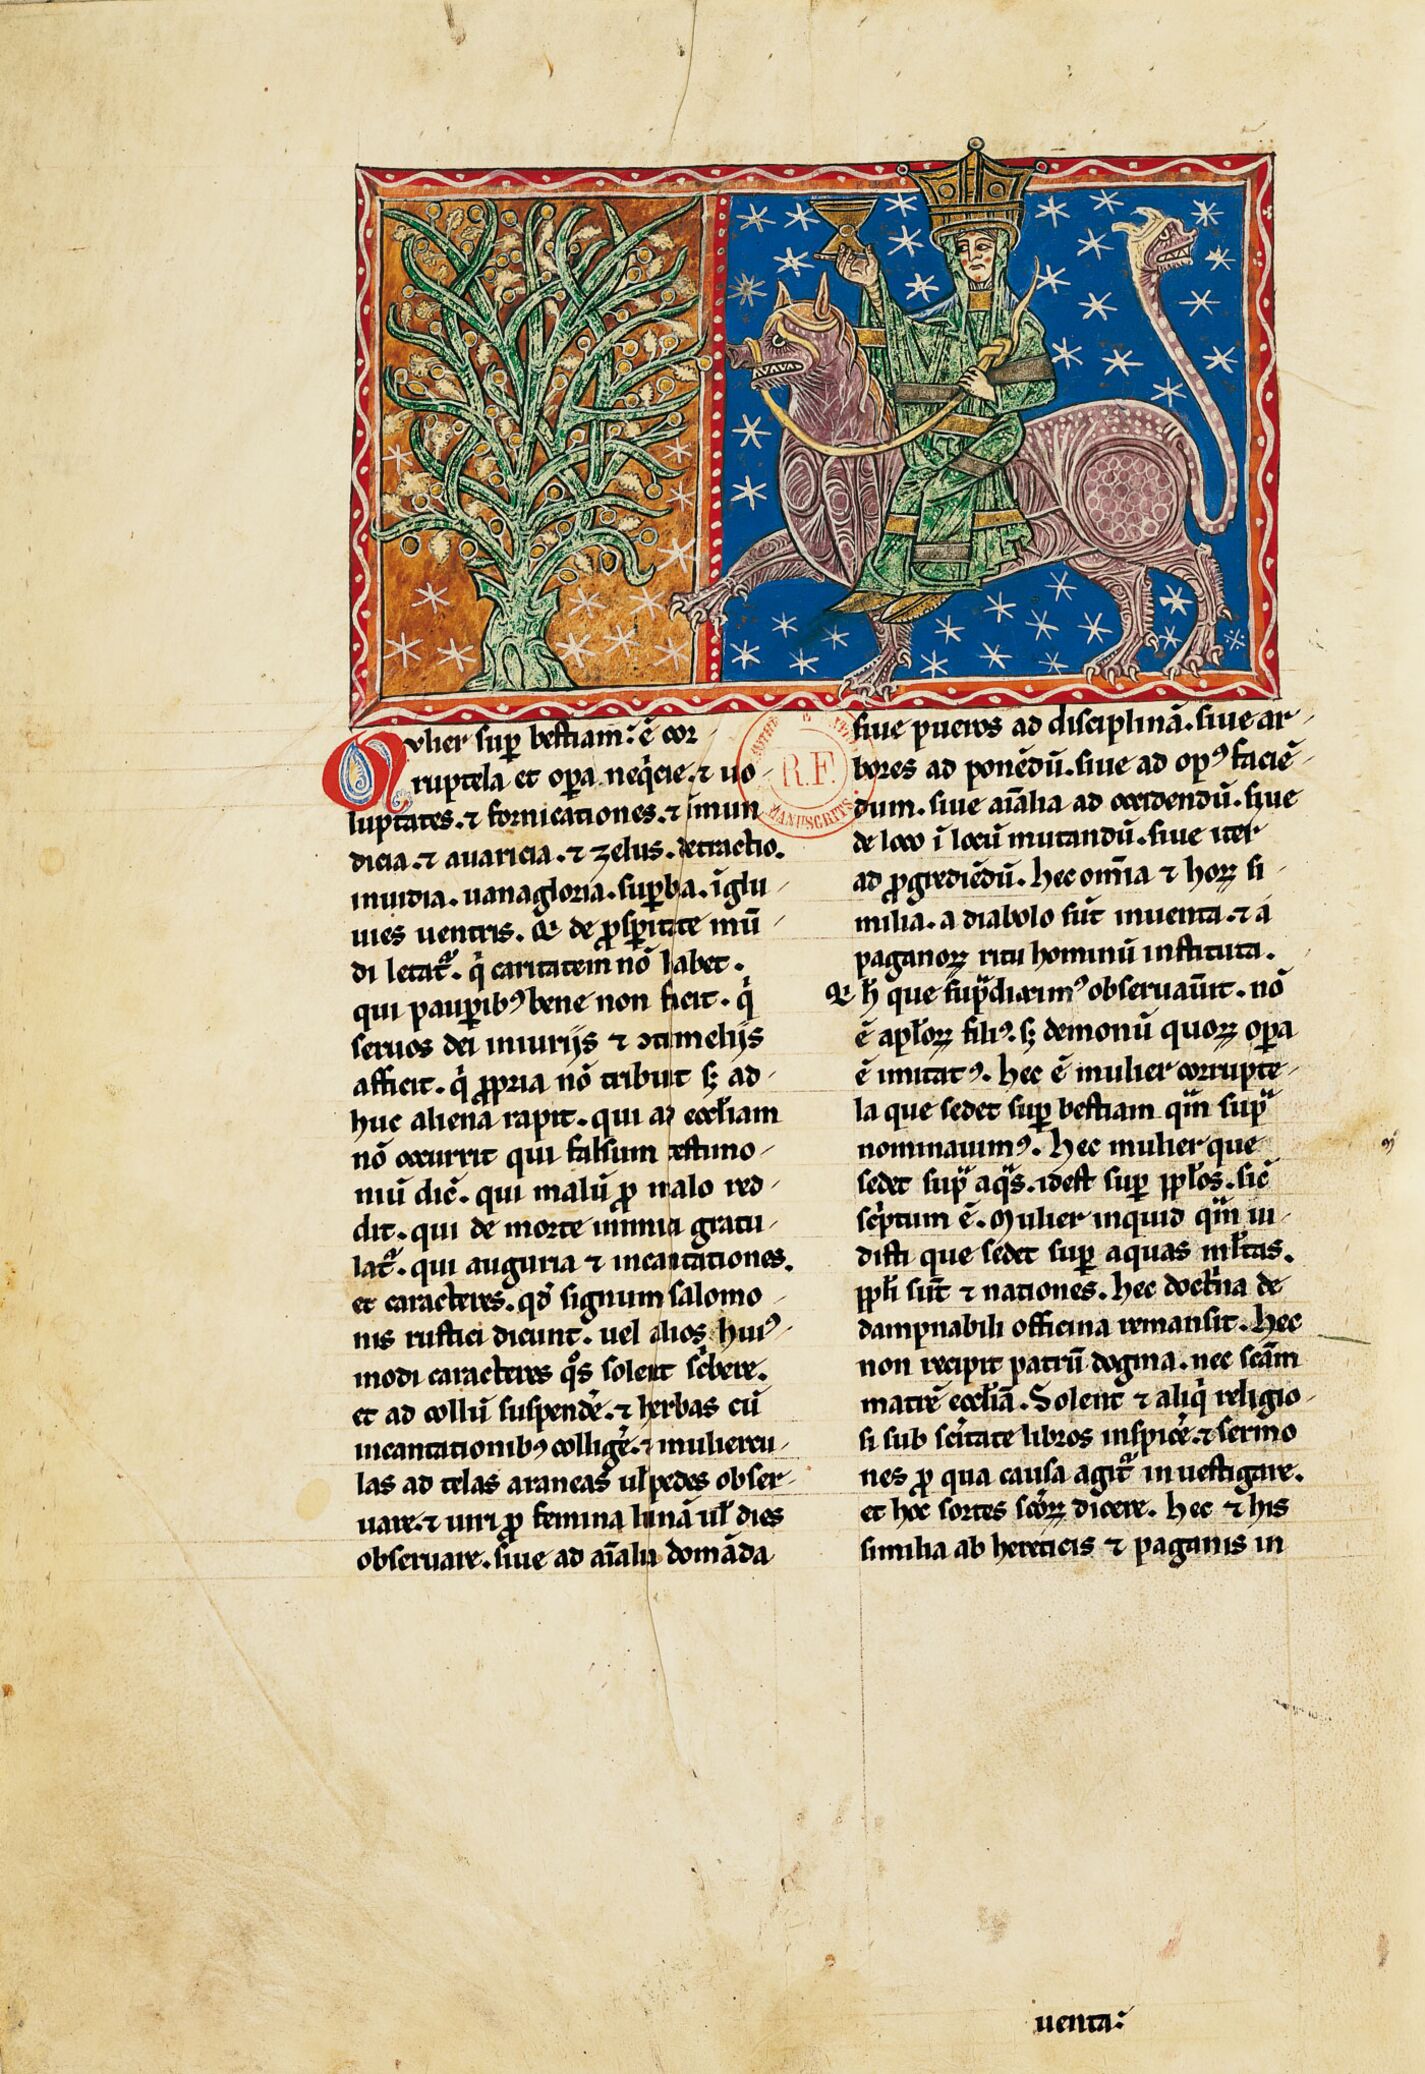 Mulier sup bestiam: ē cor
ruptela et opa neqicie. ⁊ uo
luptates. ⁊ fornicationes. ⁊ īmun
dicia. ⁊ auaricia. ⁊ zelus. detractio.
inuidia. uanagloria. supba. īglu
uies uentris. Qi de psperitate mū
di letat᷑. qi caritatem nō habet.
qui paupibꝰ bene non facit. qi
seruos dei iniurijs ⁊ ɔtumelijs
afficit. qi ppria nō tribuit sꝫ ad
huc aliena rapit. qui ad eccƚiam
nō occurrit qui falsum testimo
niū dic̄. qui malū p malo red
dit. qui de morte inimici gratu
lat᷑. qui auguria ⁊ incantationes.
et caracteres. qd̄ signum salomo
nis rustici dicunt. uel alios huiꝰ
modi caracteres qos solent scibere.
et ad collū suspende᷑. ⁊ herbas cū
incantationibꝰ collige᷑. ⁊ muliercu
las ad telas araneas uƚ pedes obser
uare. ⁊ uiri p femina lunā uƚ dies
obseruare. siue ad aīalia domāda
siue pueros ad disciplinā. siue ar
bores ad ponēdū. siue ad opꝰ faciē
dum. siue aīalia ad occidendū. siue
de loco ī locū mutandū. siue iter
ad pgrediēdū. hec omīa ⁊ hoꝝ si
milia. a diabolo sūt inuenta. ⁊ a
paganoꝝ ritu hominū instituta.
Qi h̄ que supadiximꝰ obseruauīt. nō
ē apƚoꝝ filiꝰ. sꝫ demonū quoꝝ opa
ē imitatꝰ. hec ē mulier corrupte
la que sedet sup bestiam qam supa
nominauimꝰ. hec mulier que
sedet supa aqas. idest sup ppƚos. sic̄
sciptum ē. Mulier inquid qam ui
disti que sedet sup aquas mƚtas.
ppƚi sūt ⁊ nationes. hec doctina de
dampnabili officina remansit. hec
non recipit patrū dogma. nec scām
matrē eccƚiā. Solent ⁊ aliqi religio
si sub scitate libros inspice᷑. ⁊ sermo
nes p qua causa agit᷑ inuestigare.
et hoc sortes scōꝝ dicere. hec ⁊ his
similia ab hereticis ⁊ paganis in
uenta:
R.F.
MANUSCRITS.